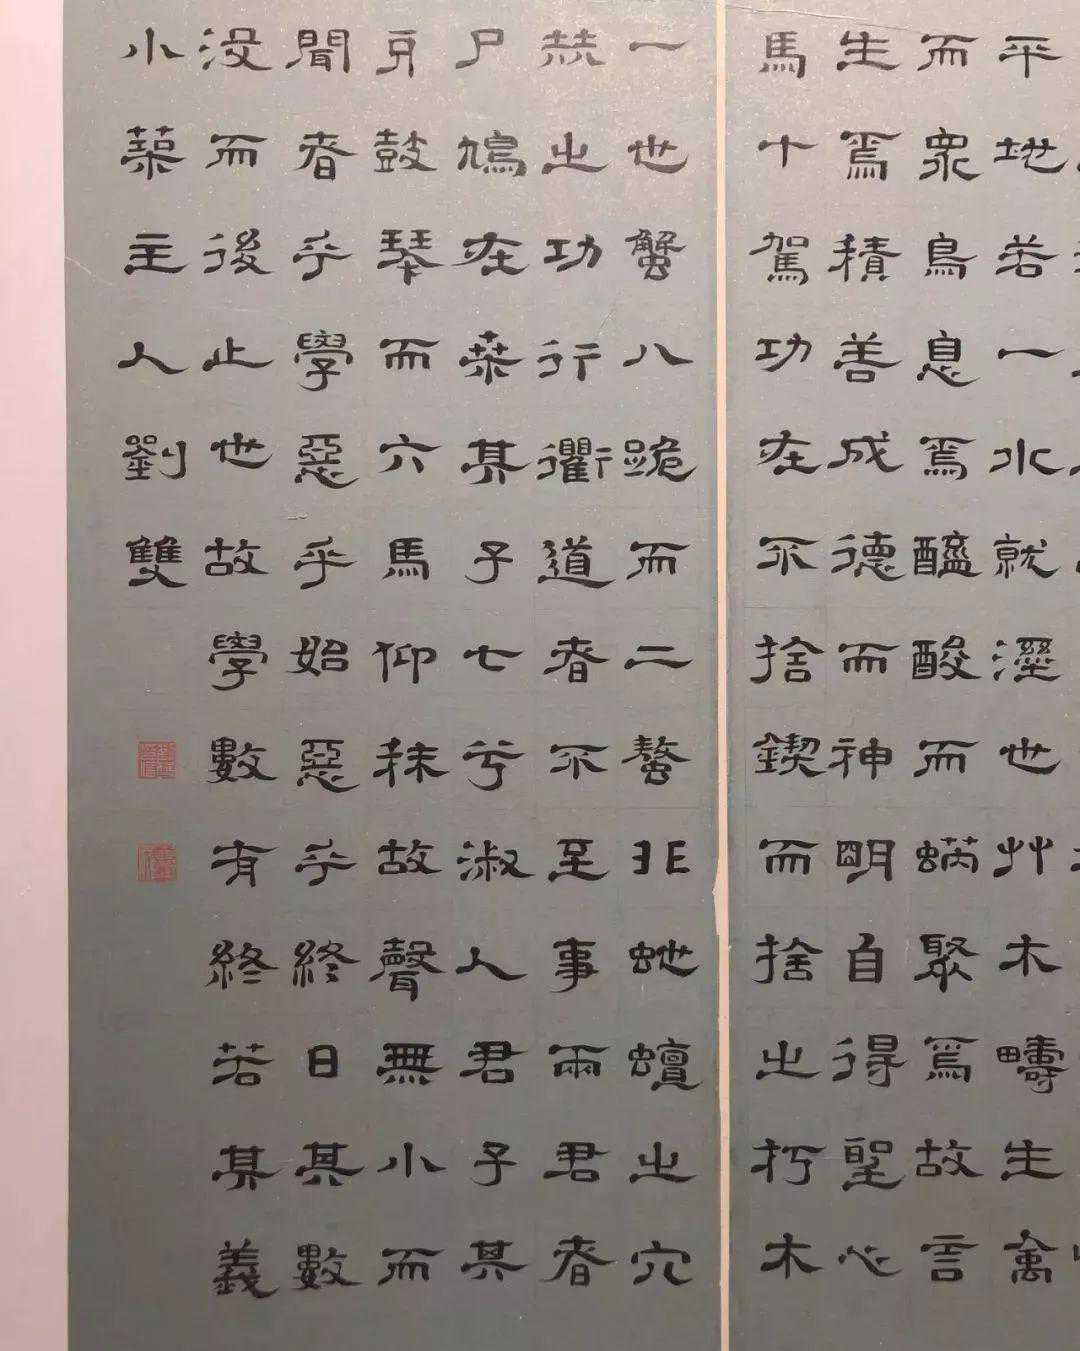 平地若一水就溼也艸木疇生禽
而衆鳥息焉醯酸而蜹聚焉故言
生焉積善成德而神明自得聖心
馬十駕功在不捨鍥而捨之朽木
一也蟹八跪而二螯非蛇蟺之穴
赫之功行衢道者不至事兩君者
尸鳩在桑其子七兮淑人君子其
牙鼓琴而六馬仰秣故聲無小而
聞者乎學惡乎始惡乎終日其數
沒而後止也故學數有終若其義
小主人劉雙